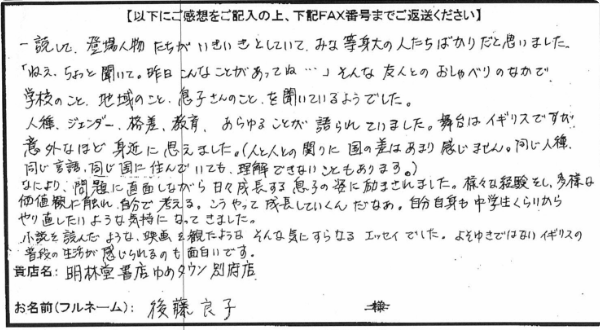 【以下にご感想をご記入の上、下記FAX番号までご返送ください】
一読して、登場人物たちがいきいきとしていて、みな等身大の人たちばかりだと思いました。
「ねえ、ちょっと聞いて。昨日こんなことがあってね…」そんな友人とのおしゃべりのなかで
学校のこと、地域のこと、息子さんのこと、を聞いているようでした。
人種、ジェンダー、格差、教育、あらゆることが語られていました。舞台はイギリスですが
意外なほど身近に思えました。(人と人との関りに国の差はあまり感じません。同じ人種、
同じ言語、同じ国に住んでいても、理解できないこともあります。)
なにより、問題に直面しながら日々成長する息子の姿に励まされました。様々な経験をし、多様な
価値観に触れ、自分で考える。こうやって成長していくんだなあ。自分自身も中学生くらいから
やり直したいような気持になってきました。
小説を読んだような、映画を観たようなそんな気にすらなるエッセイでした。よそゆきではないイギリスの
普段の生活が感じられるのも面白いです。
貴店名: 明林堂書店ゆめタウン別府店
お名前(フルネーム): 後藤良子 様